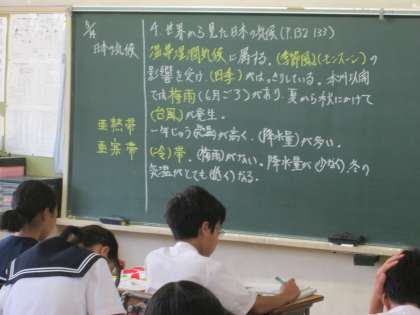 日本の気候
4. 世界から見た日本の気候 (P.132 133)
温帯湿潤気候に属する。(季節風)(モンスーン)の
影響を受け、(四季)がはっきりしている。本州以南
では梅雨(6月ごろ)があり、夏から秋にかけて
(台風)が発生。
亜熱帯
一年じゅう気温が高く、(降水量)が多い。
亜寒帯
(冷)帯。(梅雨)がない。降水量が(少なく)、冬の
気温がとても(低く)なる。